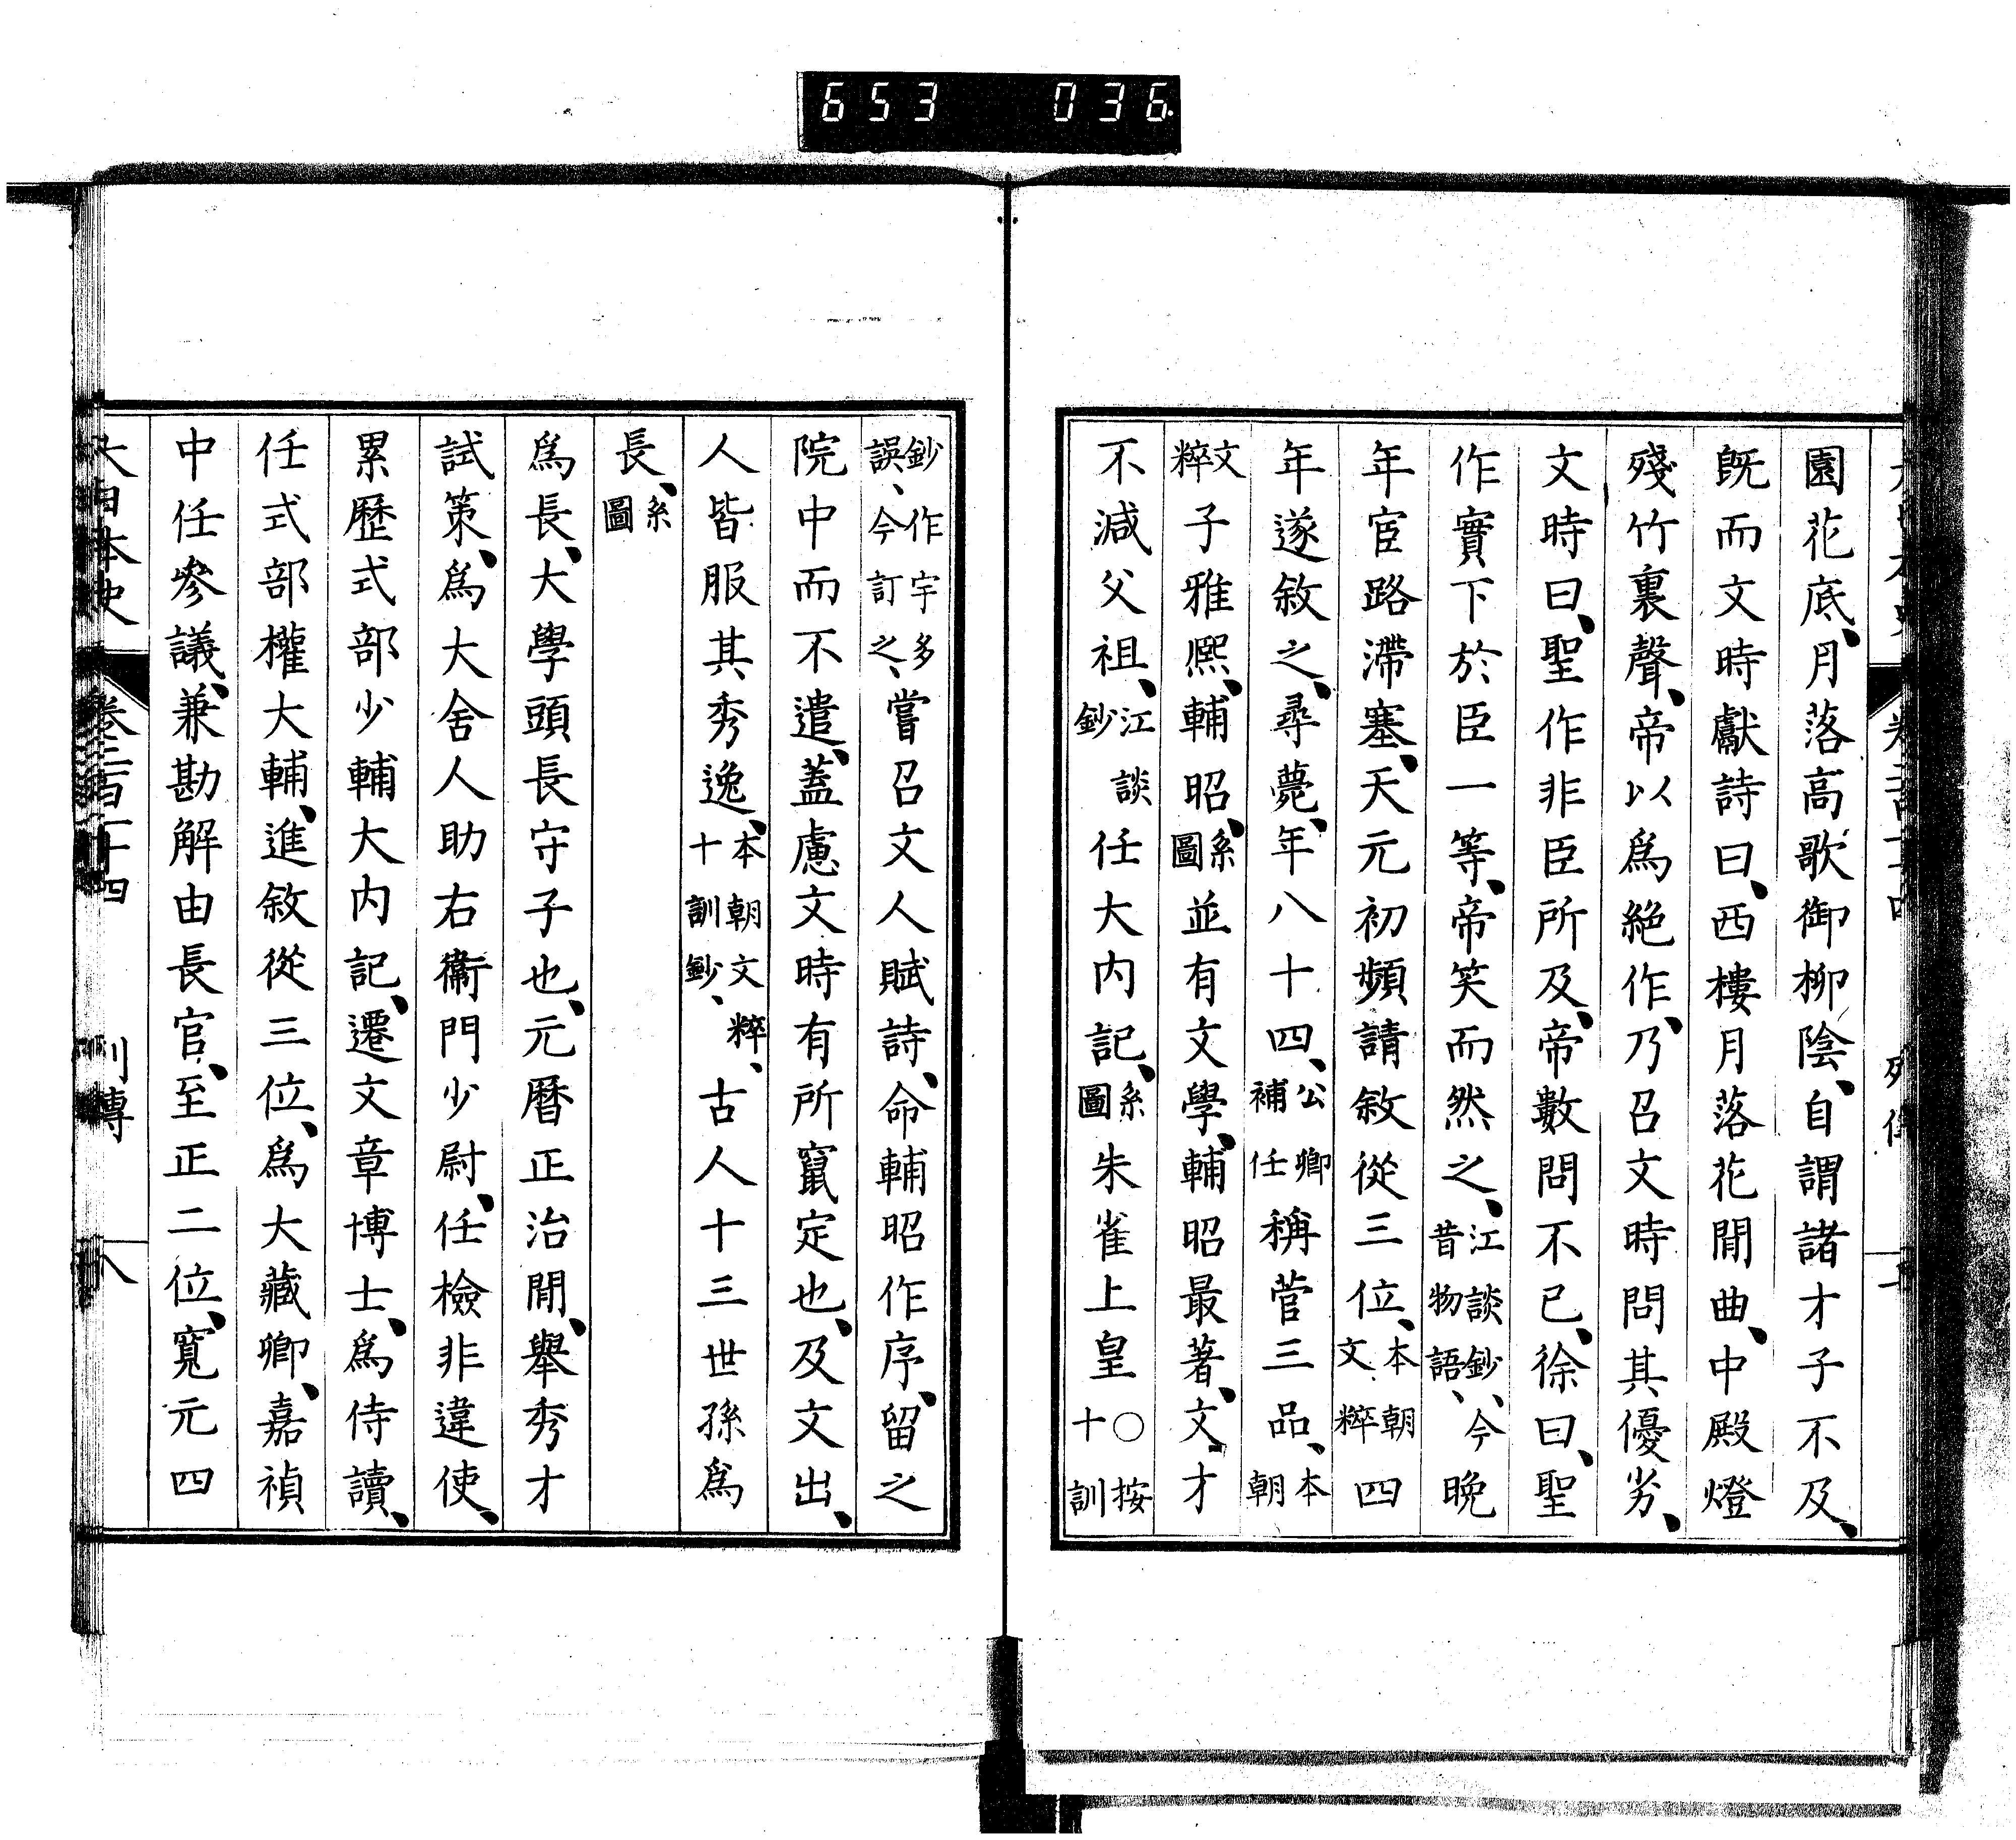 653 036
園花底、月落高歌御柳陰、自謂諸才子不及、
旣而文時獻詩曰、西樓月落花閒曲、中殿燈
殘竹裏聲、帝以爲絕作、乃召文時問其優劣、
文時曰、聖作非臣所及、帝數問不已、徐曰、聖
作實下於臣一等、帝笑而然之、江談鈔、今昔物語、晩
年宦路滯塞、天元初頻請敘從三位、本朝文粹四
年遂敘之、尋薨、年八十四、公卿補任稱菅三品、本朝
文粹子雅熙、輔昭、系圖並有文學、輔昭最著、文才
不減父祖、江談鈔任大內記、系圖朱雀上皇〇按十訓
鈔作宇多誤、今訂之、嘗召文人賦詩、命輔昭作序、留之
院中而不遣、蓋慮文時有所竄定也、及文出、
人皆服其秀逸、本朝文粹、十訓鈔、古人十三世孫爲
長、系圖
爲長、大學頭長守子也、元曆正治閒、舉秀才
試策、爲大舍人助右衞門少尉、任檢非違使、
累歷式部少輔大內記、遷文章博士、爲侍讀、
任式部權大輔、進敘從三位、爲大藏卿、嘉禎
中任參議、兼勘解由長官、至正二位、寬元四
大日本史 卷二百十四 列傳 八